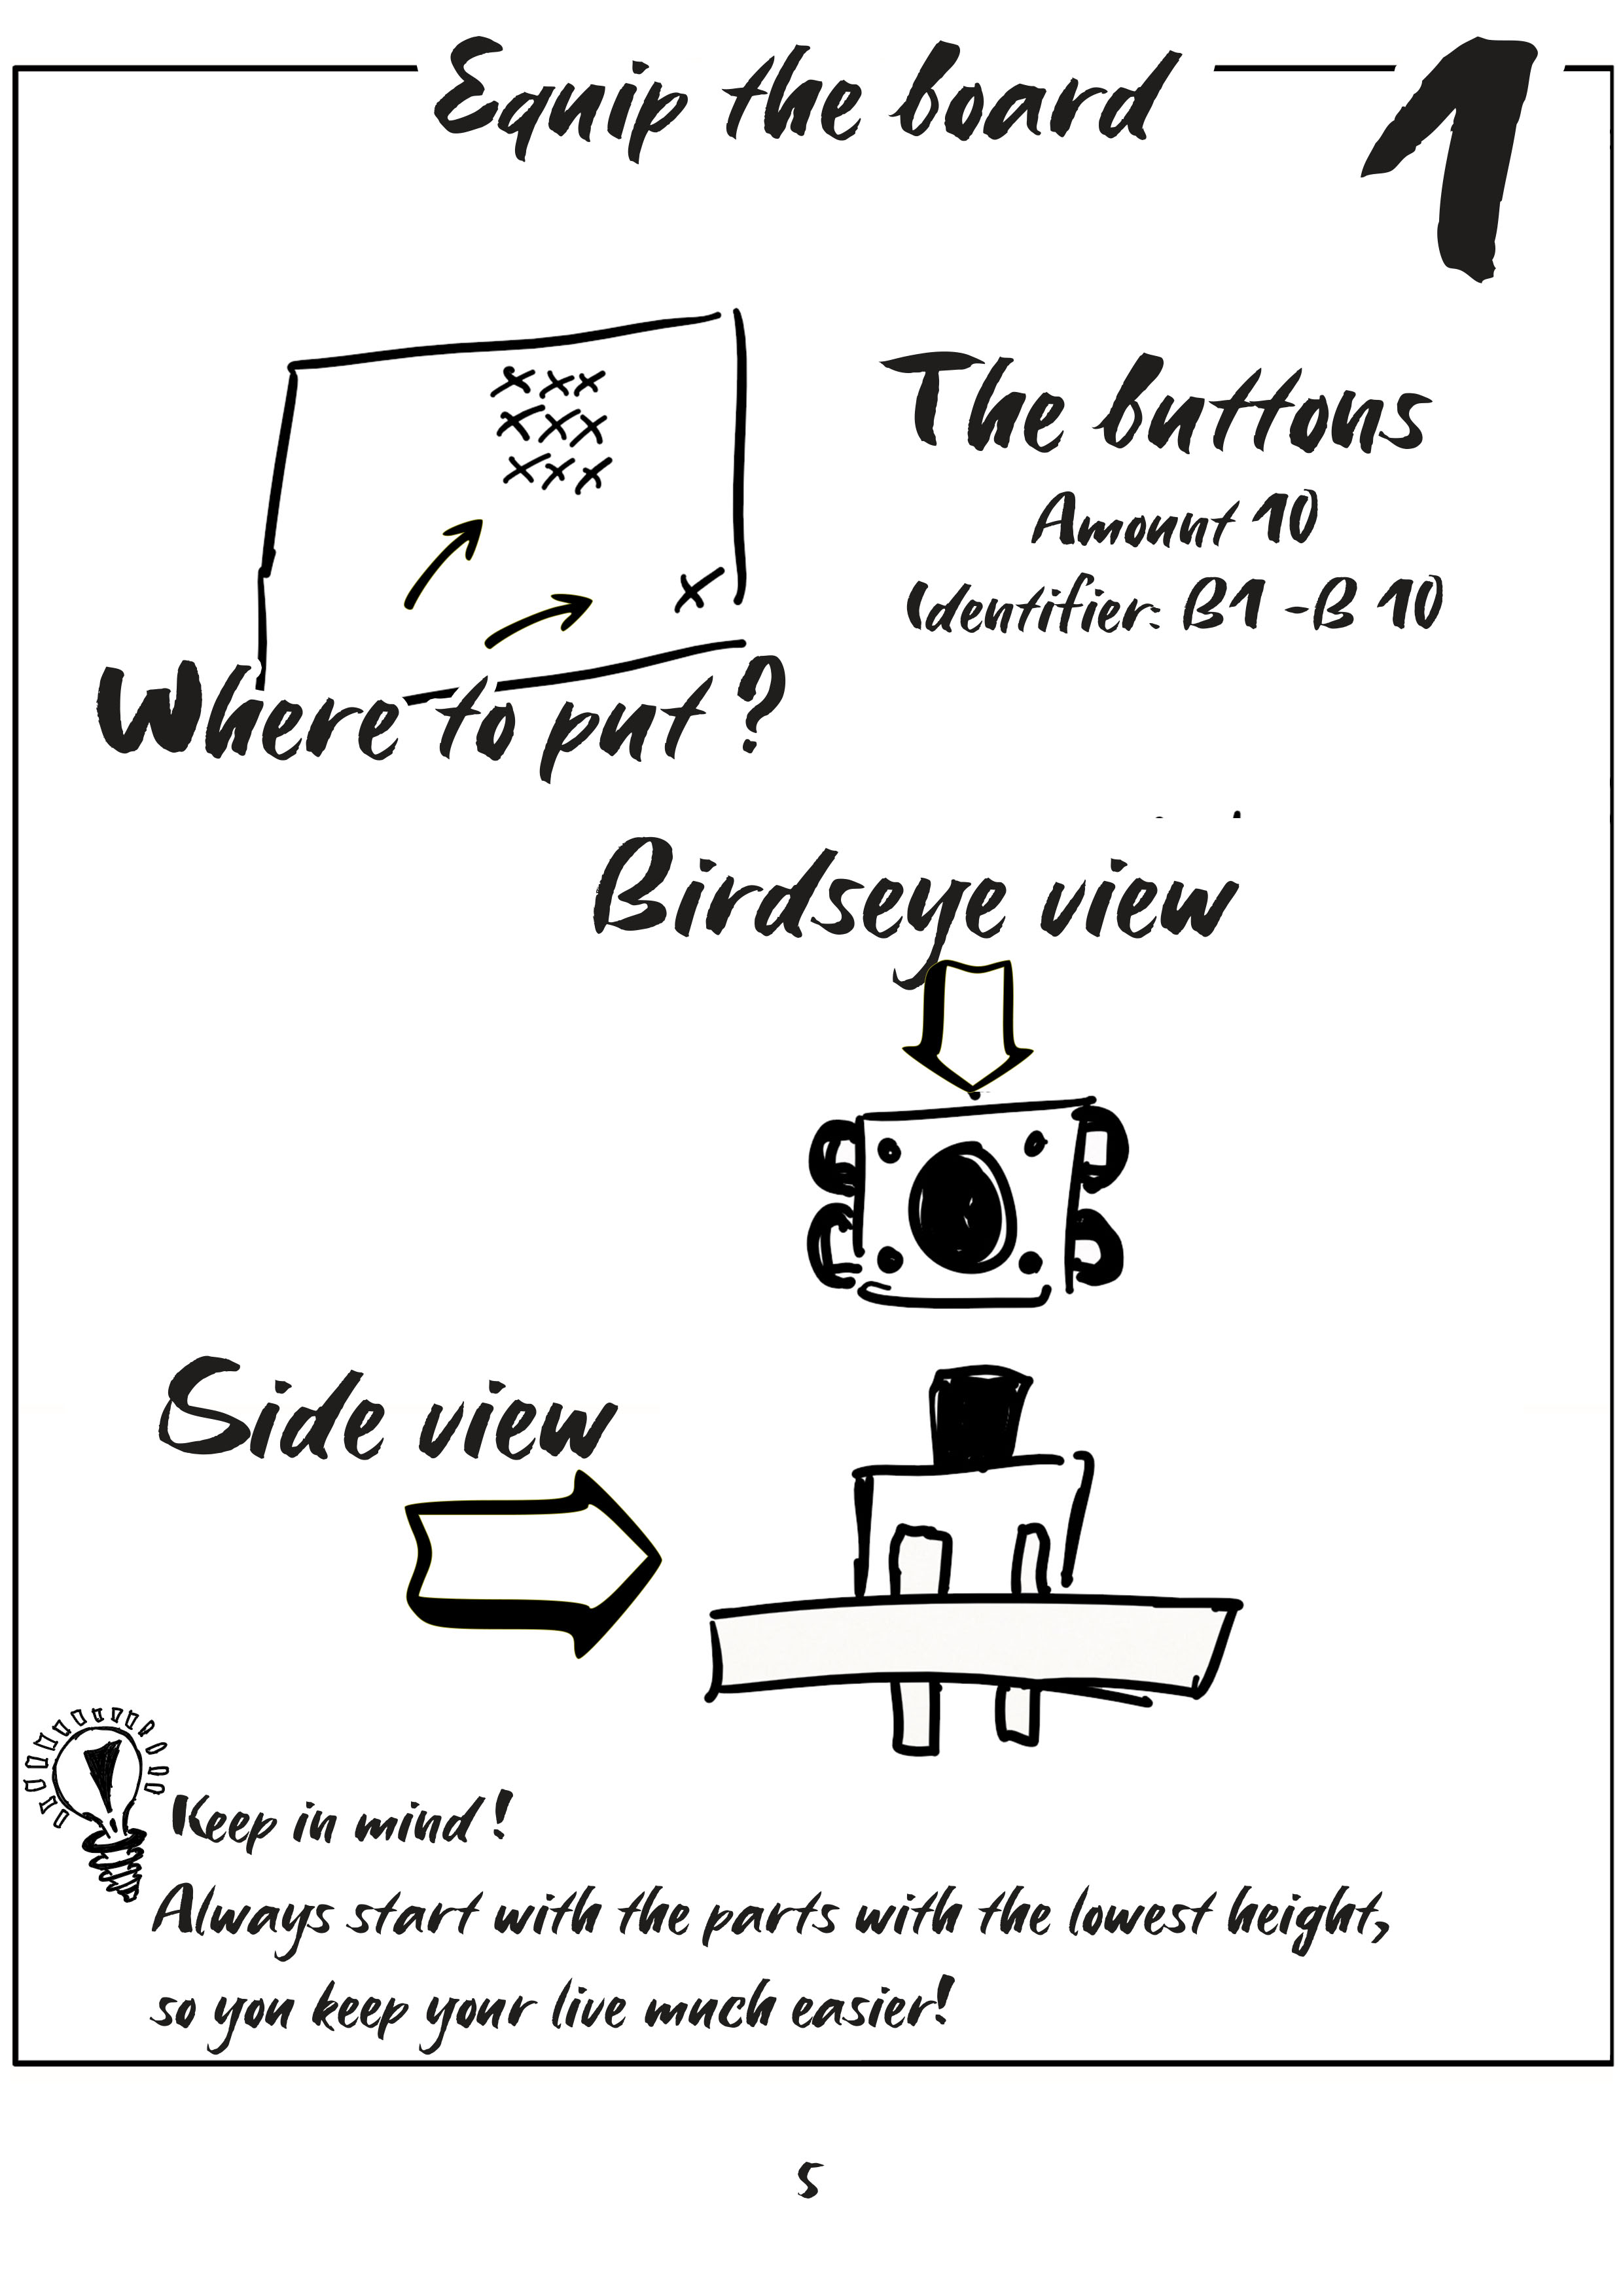 Equip the board
1
The buttons
Amount 10
Identifier: B1 -B 10
Where to put ?
Birdseye view
Side view
Keep in mind !
Always start with the parts with the lowest height,
so you keep your live much easier!
5